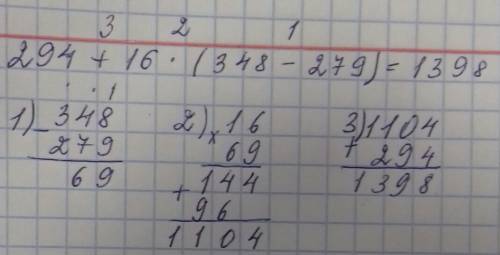 3 2 1
294 + 16 · (348 - 279) = 1398
1) - 348
279
69
2) × 16
69
+ 144
96
1104
3) + 1104
294
1398